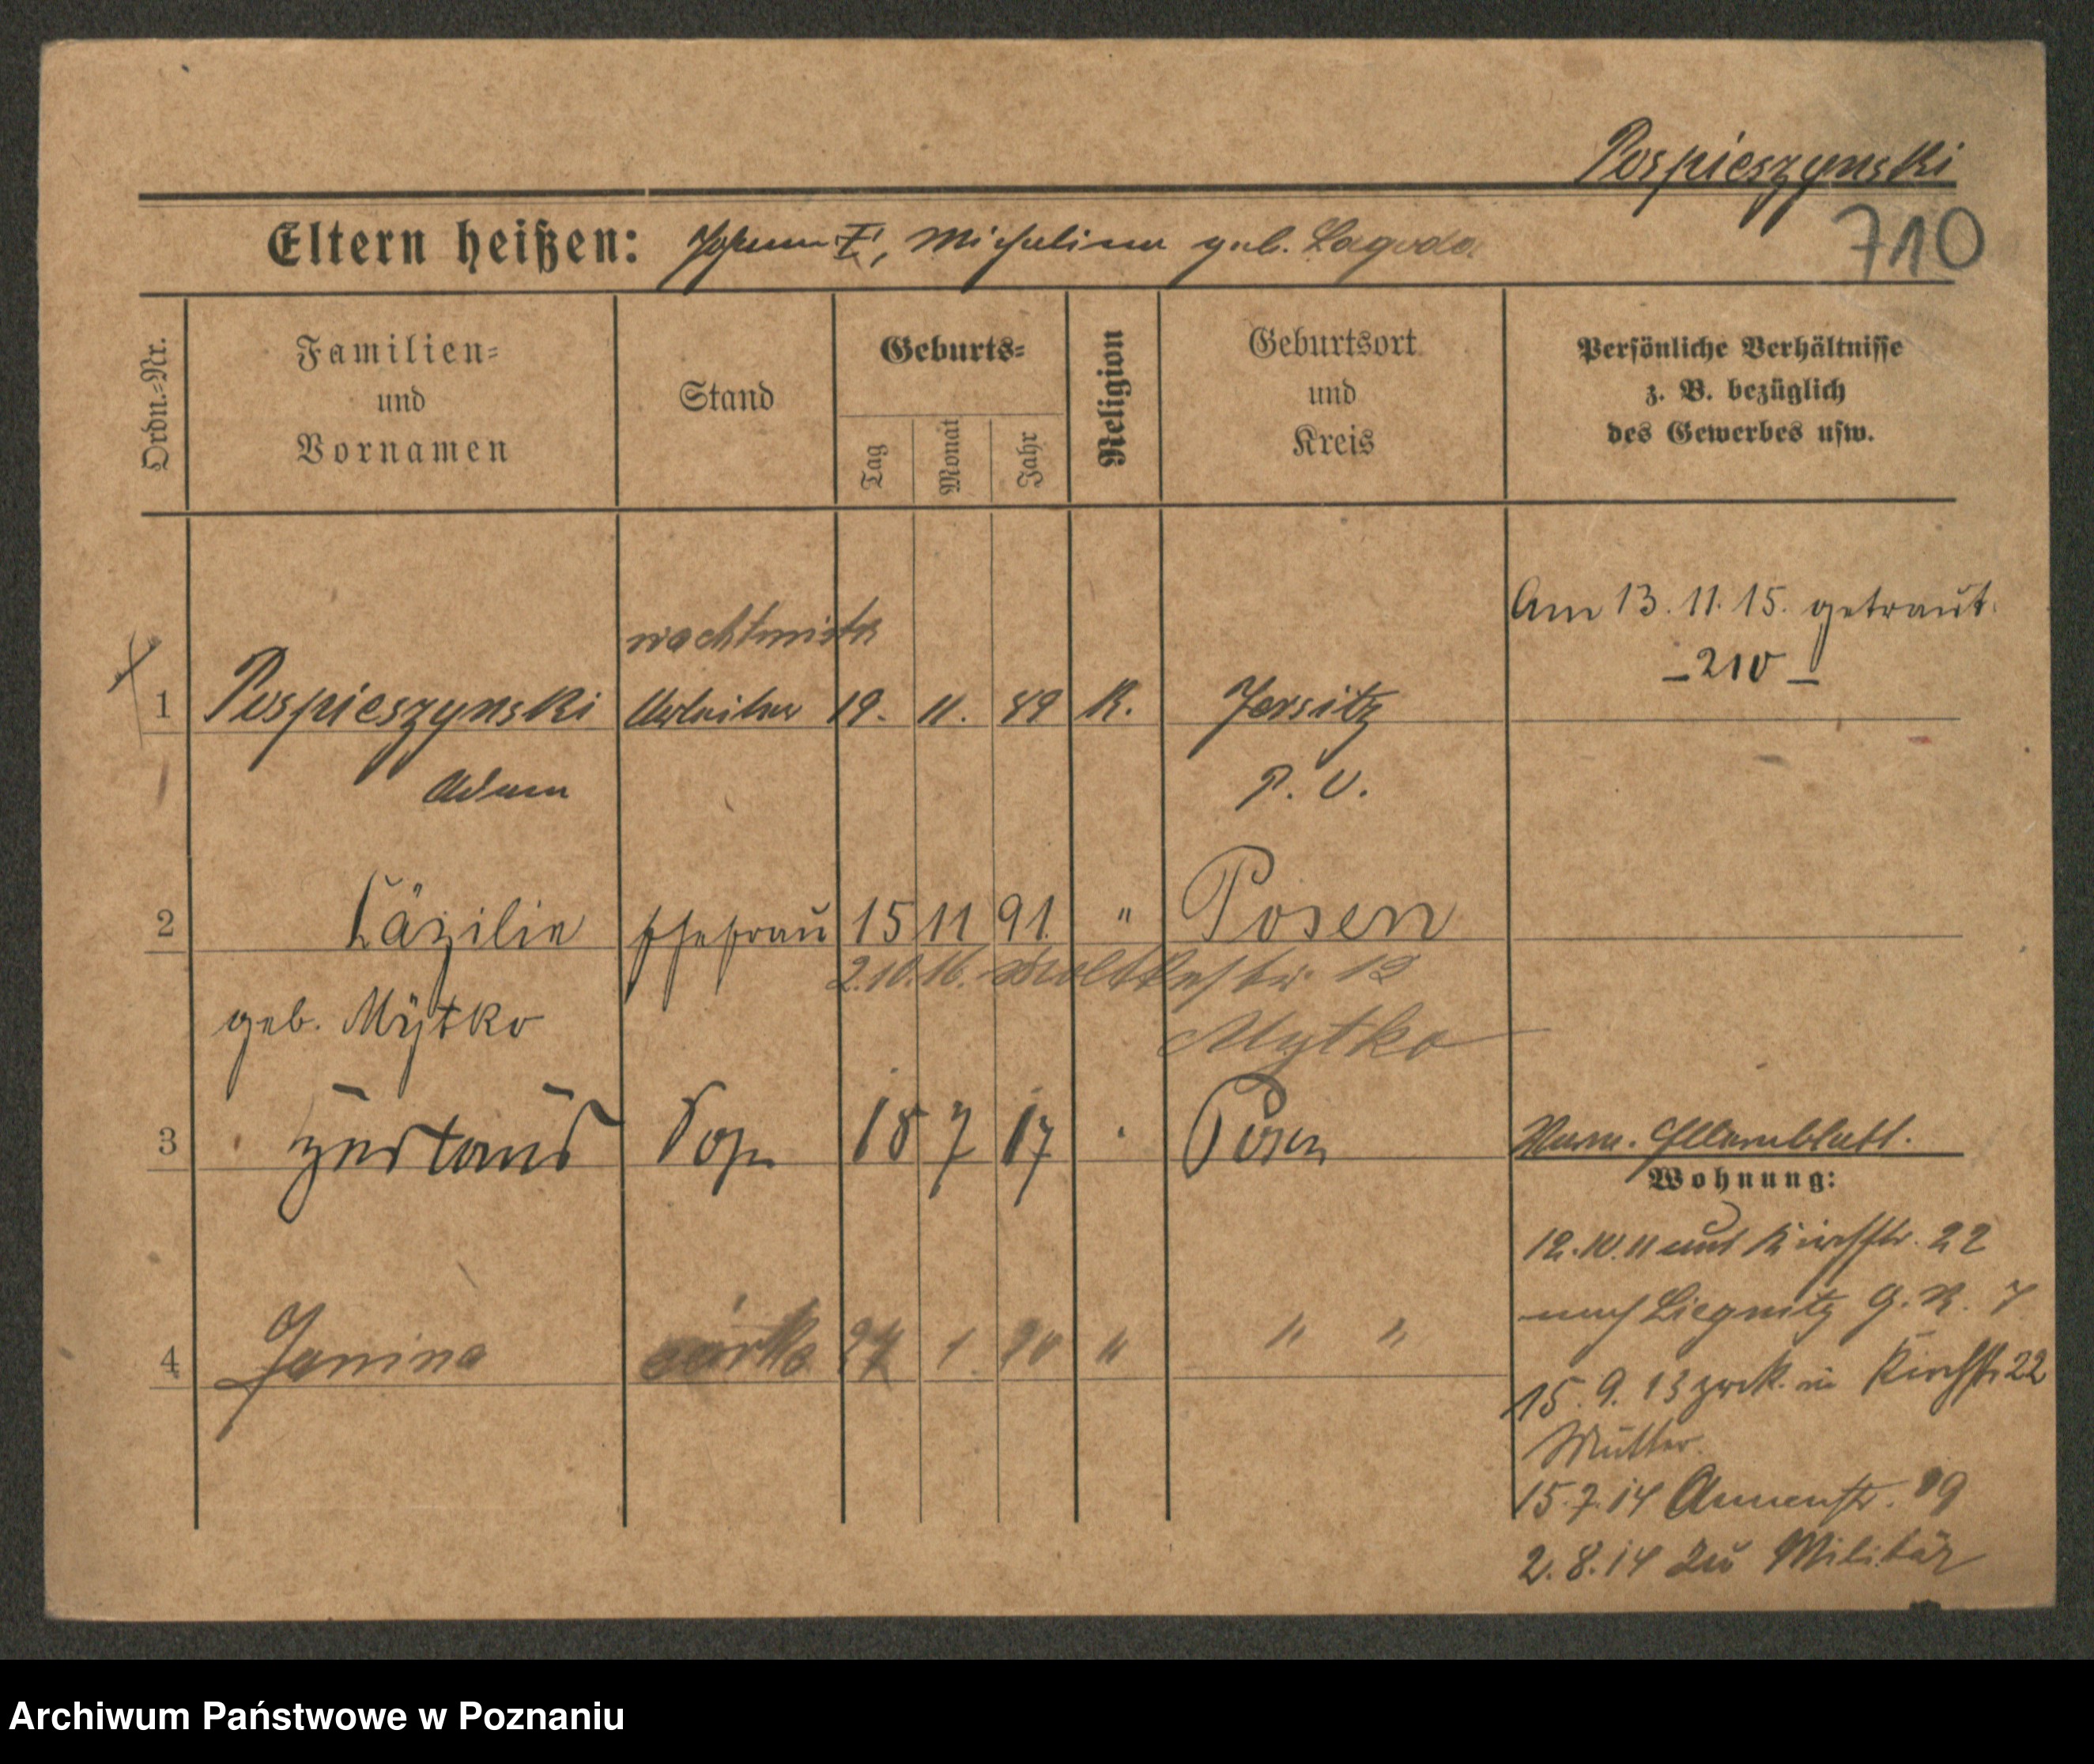 Pospieszynski
710
Eltern heißen: Johann †, Michalina geb. Lagoda
Ordn.-Nr.
Familien-
und
Vornamen
Stand
Geburts-
Tag
Monat
Jahr
Religion
Geburtsort
und
Kreis
Persönliche Verhältnisse
z. B. bezüglich
des Gewerbes usw.
Am 13.11.15. getraut.
– 210 –
wachtmistr
1 Pospieszynski Arbeiter 19. 11. 89 K. Jersitz
Adam P. O.
2 Cäzilie Ehefrau 15 11 91. " Posen
2.10.16. Moltkestr. 19
geb. Mÿtko Mytko
3 Sohn 18 7 17 Posen
4 Janina córka 1 20 " " "
Wohnung:
12.10.11 auf Kirchstr. 22
nach Liegnitz G. R. 7
15.9.13 zurk. in Kirchstr. 22
Mutter.
15.7.14 Annenstr. 19
2.8.14 zu Militär
Archiwum Państwowe w Poznaniu